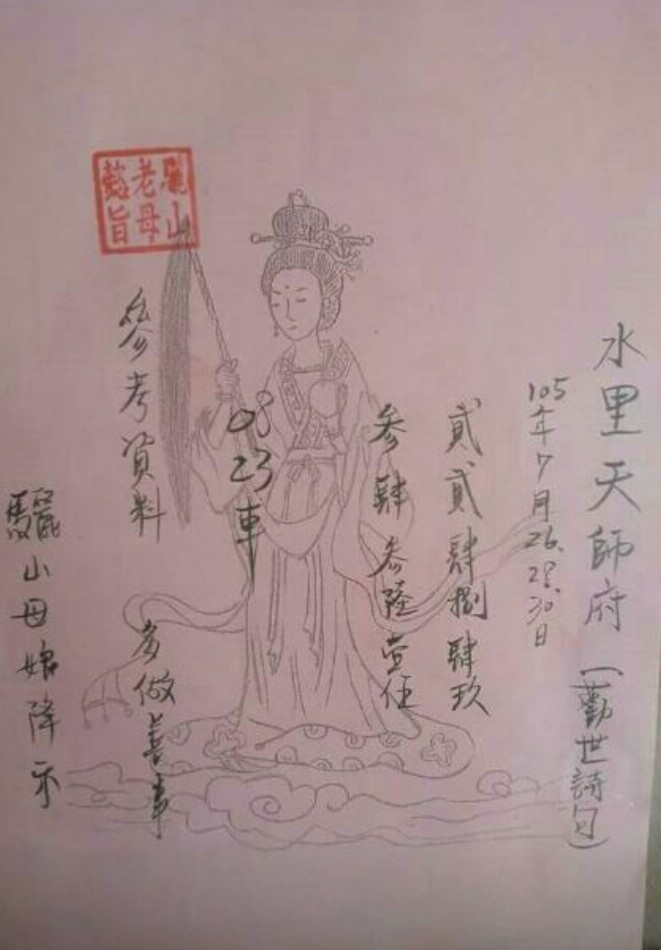 水里天師府(勸世詩句)
105年7月26.28.30日
貳貳肆捌肆玖
参肆参陸壹伍
08
23
車
參考資料
多做善事
驪山母娘降示
驪山
老母
懿旨